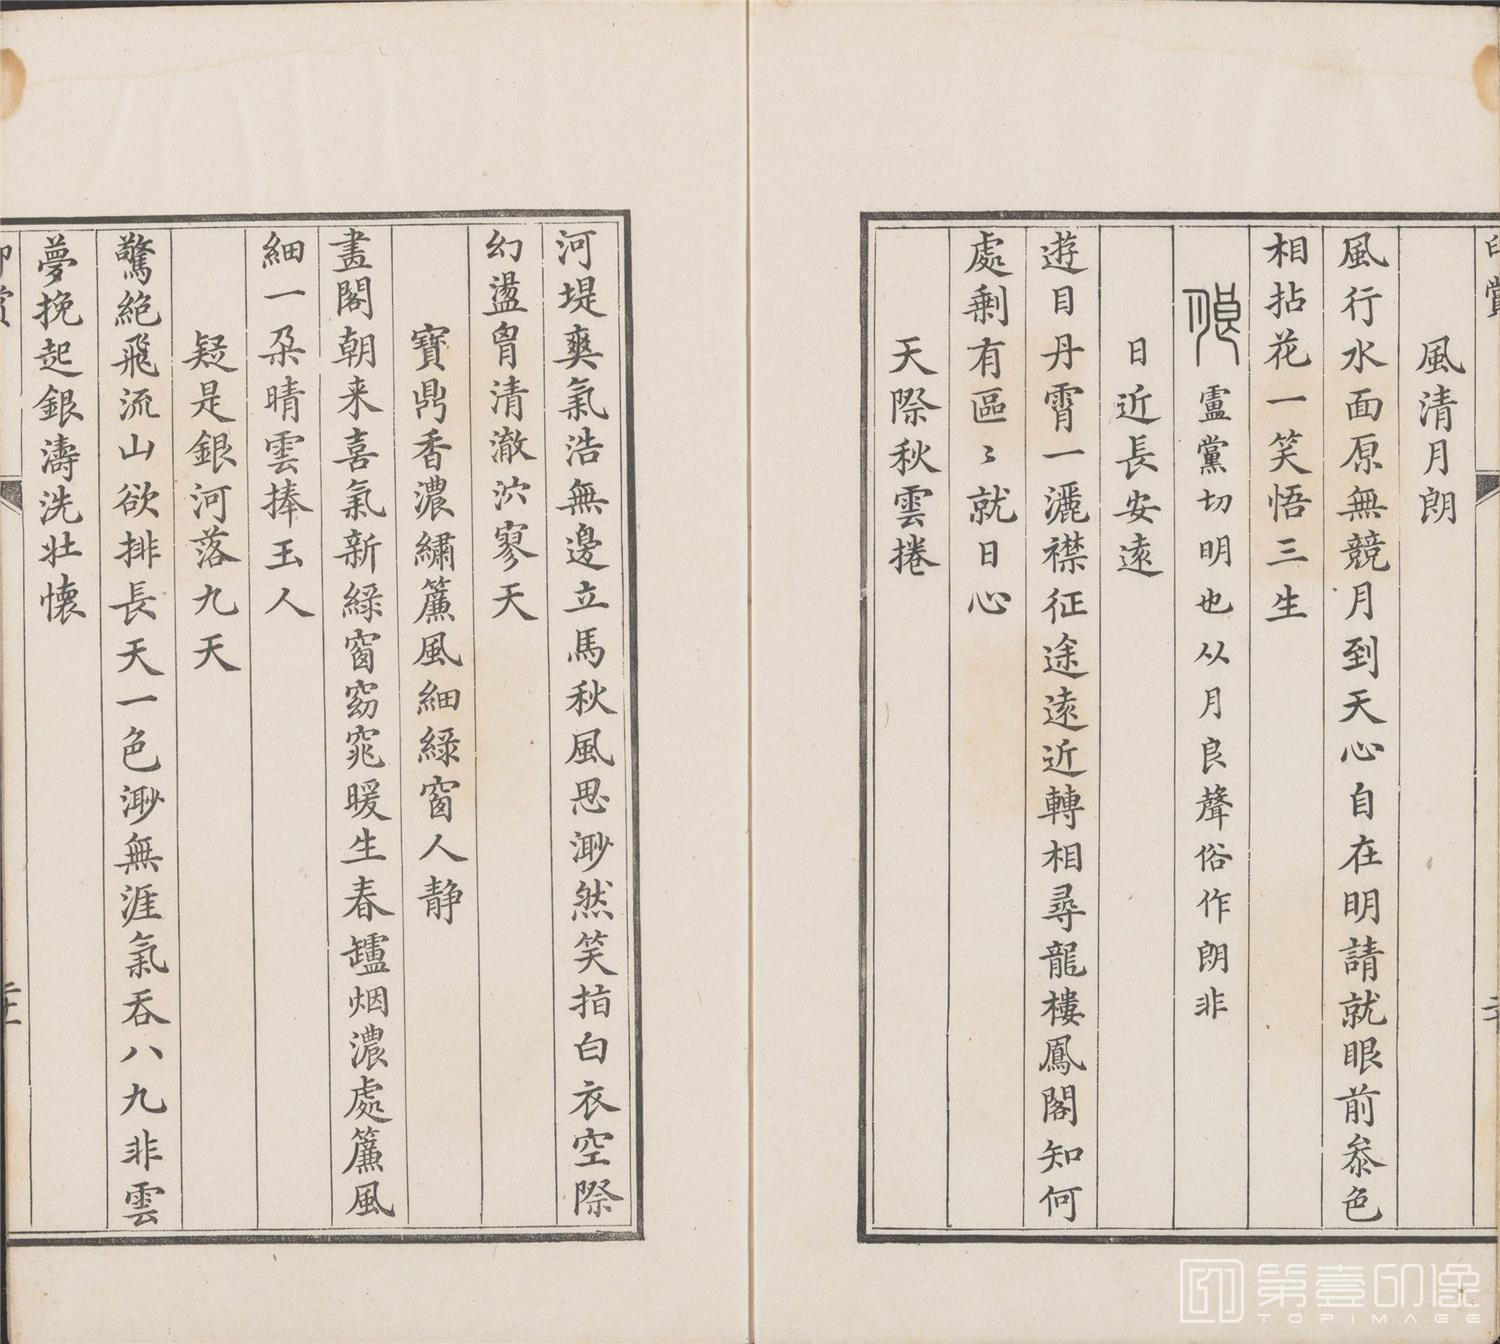 印賞
風清月朗
風行水面原無競月到天心自在明請就眼前叅色
相拈花一笑悟三生
盧黨切明也从月良聲俗作朗非
日近長安遠
遊目丹霄一灑襟征途遠近轉相尋龍樓鳳閣知何
處剩有區〻就日心
天際秋雲捲
河堤爽氣浩無邊立馬秋風思渺然笑指白衣空際
幻盪胷清澈泬寥天
寶鼎香濃繡簾風細綠窗人靜
畫閣朝来喜氣新綠窗窈窕暖生春罏烟濃處簾風
細一朶晴雲捧玉人
疑是銀河落九天
驚絕飛流山欲排長天一色渺無涯氣吞八九非雲
夢挽起銀濤洗壯懷
印賞
第壹印像
TOPIMAGE